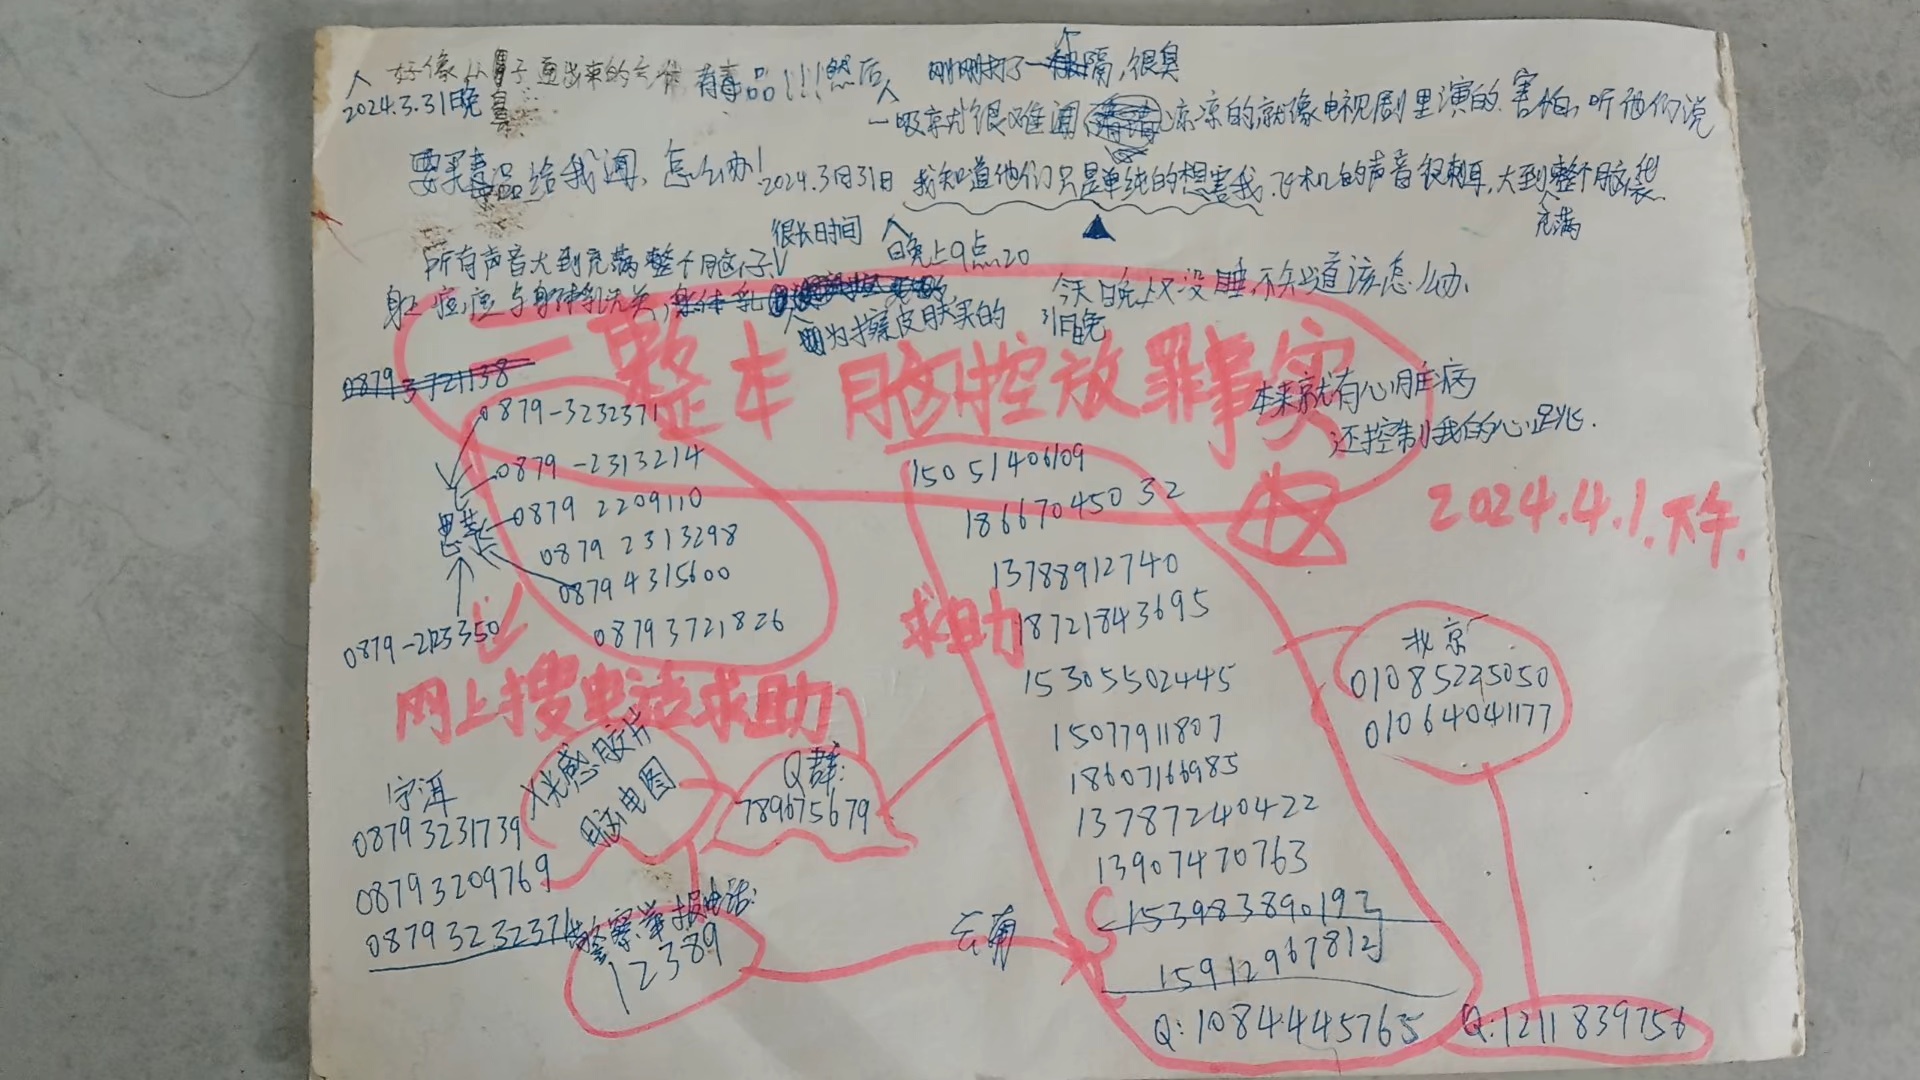 好像从鼻子通出来的气体有毒品!!!然后 刚刚打了一隔,很臭
2024.3.31晚 臭
一吸京尤很难闻 凉凉的,就像电视剧里演的.害怕,听他们说
要买毒品给我闻,怎么办!2024.3月31日 我知道他们只是单纯的想害我.飞机的声音很刺耳,大到整个脑袋
充满
很长时间
所有声音大到充满整个脑仔 晚上9点20
身上痘痘与身体乳无关,身体乳
因为擦皮肤买的
今天晚上又没睡,不知道该怎么办.
31日晚
一整本脑控放罪事实
本来就有心脏病
还控制我的心跳.
08793721138
0879-3232371
0879-2313214
0879 2209110
0879 2313298
0879 4315600
08793721826
思茅
0879-2123350
15051406109
18667045032
13788912740
18721843695
15305502445
15077911807
18607166985
13787240422
13907470763
15398389019
15912967812
云南
Q:1084445765
求助
2024.4.1.下午.
北京
01085225050
01064041177
Q:1211839756
网上搜电话求助
X光感胶片
脑电图
Q群:
789675679
宁洱
08793231739
08793209769
08793232371
警察举报电话:
12389